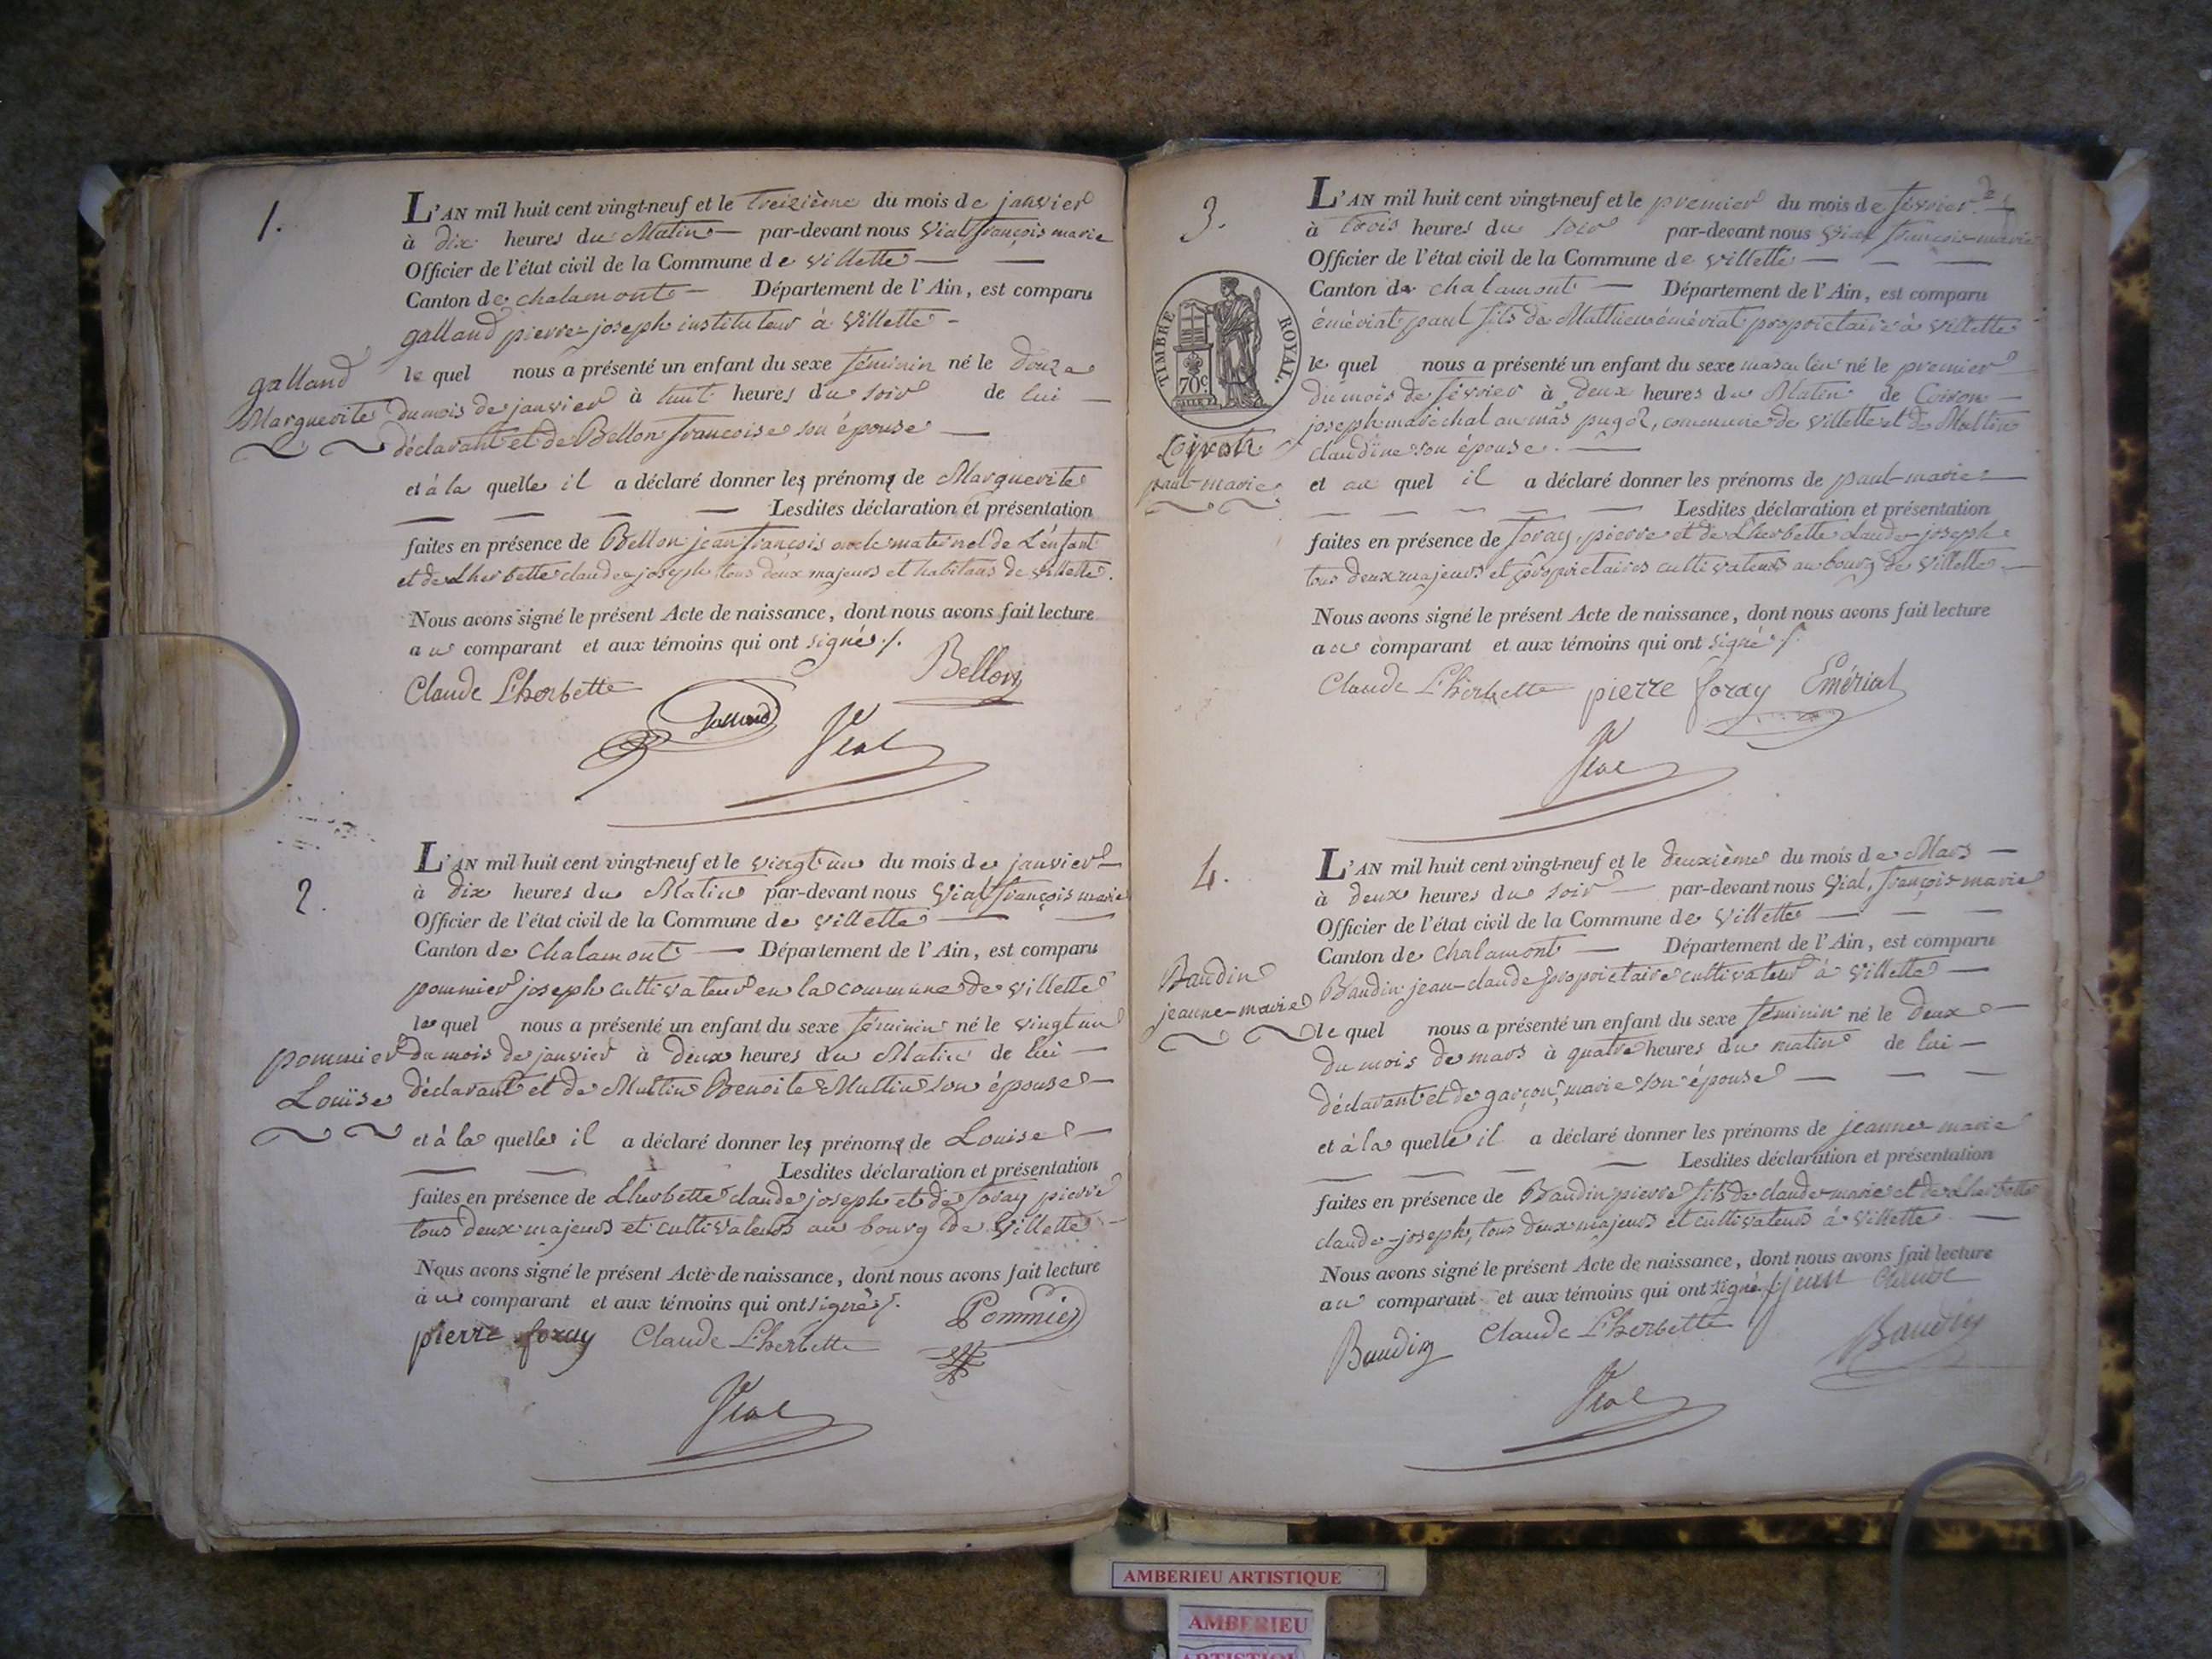 1.
L'AN mil huit cent vingt-neuf et le treizième du mois de janvier
à dix heures du Matin — par-devant nous Vial françois marie
Officier de l'état civil de la Commune de villette — —
Canton de chalamont — Département de l'Ain, est comparu
galland pierre joseph instituteur à Villette -
le quel nous a présenté un enfant du sexe féminin né le douze
galland
Marguerite
du mois de janvier à huit heures du soir de lui —
déclarant et de Bellon francoise son épouse —
et à la quelle il a déclaré donner les prénoms de Marguerite
— — — — Lesdites déclaration et présentation
faites en présence de Bellon jean françois oncle maternel de L'enfant
et de Lherbette claude joseph tous deux majeurs et habitans de villette.
Nous avons signé le présent Acte de naissance, dont nous avons fait lecture
au comparant et aux témoins qui ont signé ./.
Claude Lherbette Bellon
Galland Vial
2.
L'AN mil huit cent vingt-neuf et le vingt un du mois de janvier —
à dix heures du Matin par-devant nous Vial françois marie
Officier de l'état civil de la Commune de villette — —
Canton de Chalamont — Département de l'Ain, est comparu
pommier joseph cultivateur en la commune de villette
le quel nous a présenté un enfant du sexe féminin né le vingt un
pommier
Louïse
du mois de janvier à deux heures du Matin de lui —
déclarant et de Multin Benoite Multin son épouse —
et à la quelle il a déclaré donner les prénoms de Louise —
— — Lesdites déclaration et présentation
faites en présence de Lherbette claude joseph et de foray pierre
tous deux majeurs et cultivateurs au bourg de Villette —
Nous avons signé le présent Acte de naissance, dont nous avons fait lecture
au comparant et aux témoins qui ont signé ./.
pierre foray Claude Lherbette Pommier
Vial
3.
L'AN mil huit cent vingt-neuf et le premier du mois de février
à trois heures du soir par-devant nous Vial françois-marie
Officier de l'état civil de la Commune de villette — — —
Canton de chalamont — Département de l'Ain, est comparu
émériat paul fils de Mathieu émériat propriétaire à villette
TIMBRE ROYAL.
70c
le quel nous a présenté un enfant du sexe masculin né le premier
du mois de février à deux heures du Matin de Coiron —
joseph maréchal au mas pugoz, commune de villette et de Multin
claudine son épouse. —
paul-marie
et au quel il a déclaré donner les prénoms de paul-marie —
— — — — — Lesdites déclaration et présentation
faites en présence de foray, pierre et de Lherbette claude-joseph
tous deux majeurs et propriétaires cultivateurs au bourg de Villette —
Nous avons signé le présent Acte de naissance, dont nous avons fait lecture
au comparant et aux témoins qui ont signé ./.
Claude Lherbette pierre foray Emériat
Vial
4.
L'AN mil huit cent vingt-neuf et le deuxième du mois de Mars —
à deux heures du soir — par-devant nous Vial, françois-marie
Officier de l'état civil de la Commune de Villette — — —
Canton de Chalamont — Département de l'Ain, est comparu
Baudin jean-claude propriétaire cultivateur à Villette —
Baudin
jeanne-marie
le quel nous a présenté un enfant du sexe féminin né le deux —
du mois de mars à quatre heures du matin de lui —
déclarant et de garçon, marie son épouse — — —
et à la quelle il a déclaré donner les prénoms de jeanne-marie
— — — — Lesdites déclaration et présentation
faites en présence de Baudin pierre fils de claude marie et de Lherbette
claude-joseph, tous deux majeurs et cultivateurs à Villette —
Nous avons signé le présent Acte de naissance, dont nous avons fait lecture
au comparant et aux témoins qui ont signé ./. jean claude
Baudin Claude Lherbette Baudin
Vial
AMBERIEU ARTISTIQUE
AMBERIEU
ARTISTIQUE